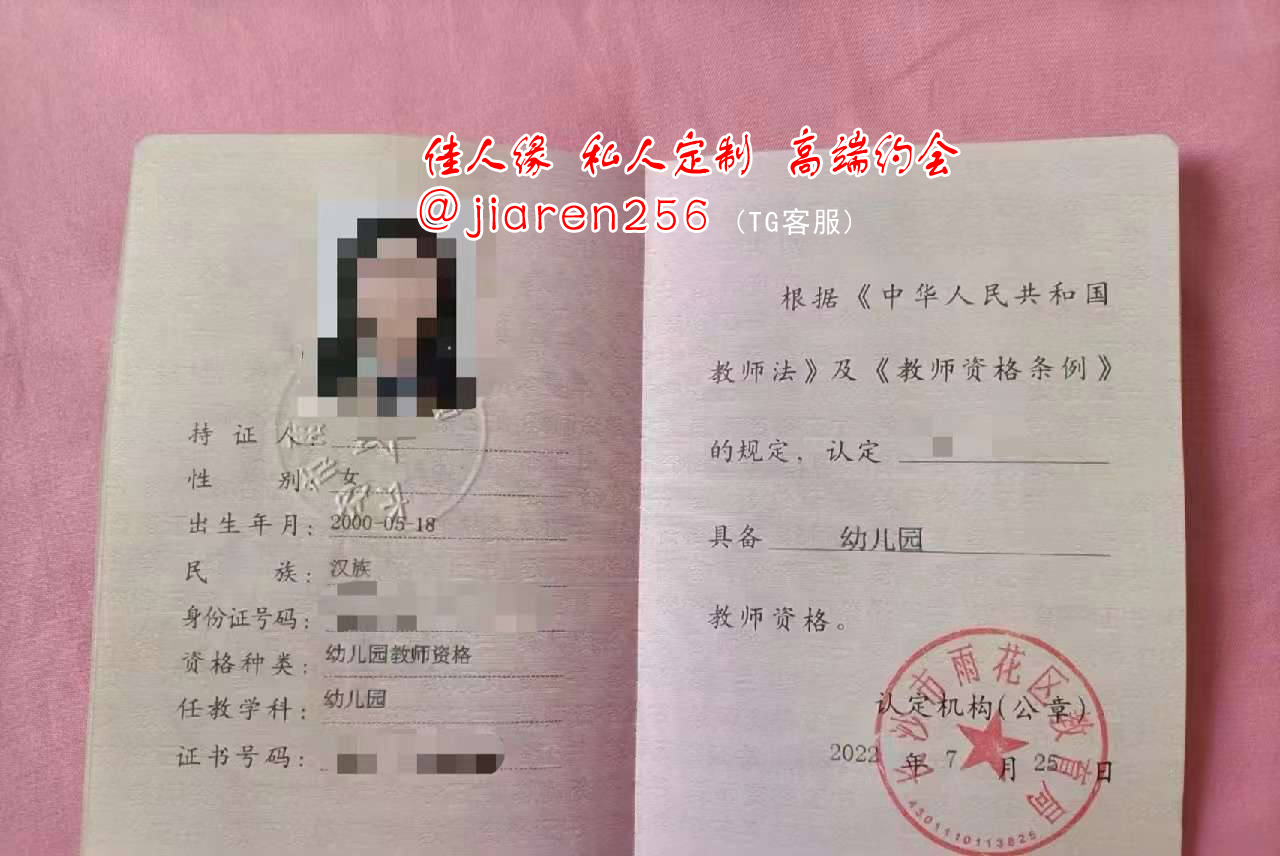 佳人缘 私人定制 高端约会
@jiaren256 (TG客服)
持证人:
性别: 女
出生年月: 2000-05-18
民族: 汉族
身份证号码:
资格种类: 幼儿园教师资格
任教学科: 幼儿园
证书号码:
根据《中华人民共和国
教师法》及《教师资格条例》
的规定, 认定
具备 幼儿园
教师资格。
长沙市雨花区教育局
认定机构(公章)
2022 年 7 月 25 日
4301110113825